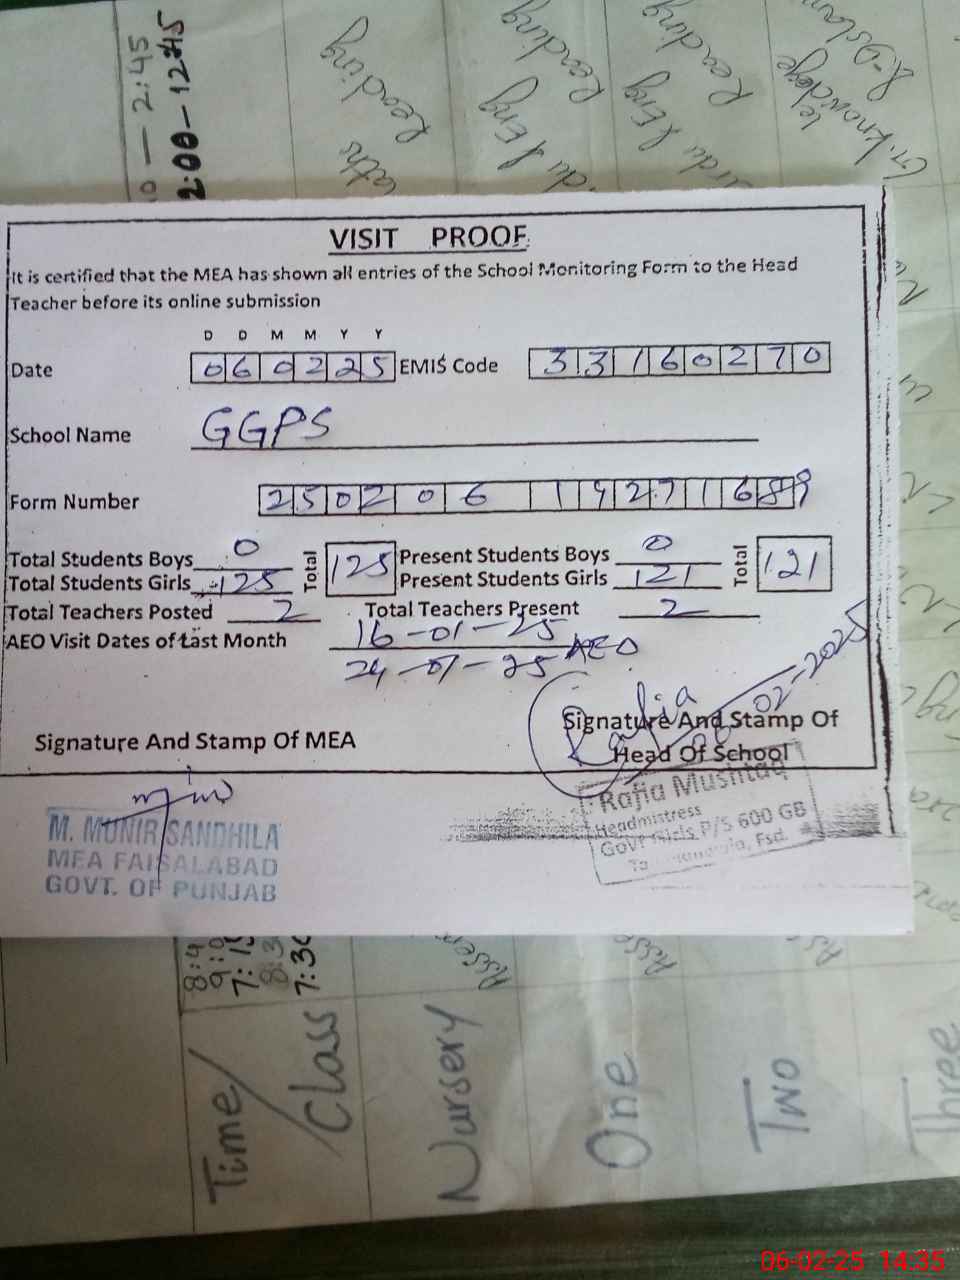 2:45
2:00-12:45
Reading
Reading
& Eng
Reading
& Eng
Reading
G.knowledge
VISIT PROOF
It is certified that the MEA has shown all entries of the School Monitoring Form to the Head
Teacher before its online submission
D D M M Y Y
Date 060225 EMIS Code 33160270
School Name GGPS
Form Number
Total Students Boys 0 Total 125 Present Students Boys 0 Total 121
Total Students Girls 125 Present Students Girls 121
Total Teachers Posted 2 Total Teachers Present 2
AEO Visit Dates of Last Month 16-01-25
24-01-25 AEO
Rafia
02-2025
Signature And Stamp Of MEA
Signature And Stamp Of
Head Of School
M. MUNIR SANDHILA
MEA FAISALABAD
GOVT. OF PUNJAB
Rafia Mushtaq
Headmistress
Govt Girls P/S 600 GB
Fsd.
7:30
Time/Class
Nursery
One
Two
Three
06-02-25 14:35